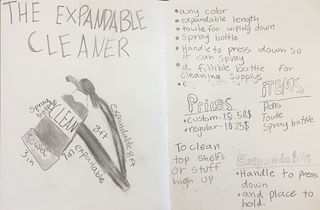 THE EXPANDABLE
CLEANER
spray
bottle
CLEAN
towel
3in
7in
expandable
2ft
expandable 8ft
• any color
• expandable length
• towle for wiping down
• Spray bottle
• Handle to press down so
it can spray
• a fillible bottle for
cleaning supplys
Prices
• Custom-15.50$
• regular-10.25$
iTEMS
Towle
Spray bottle
To clean
top shelfs
or stuff
high up
Expandable
• Handle to press
down
• and place to
hold.